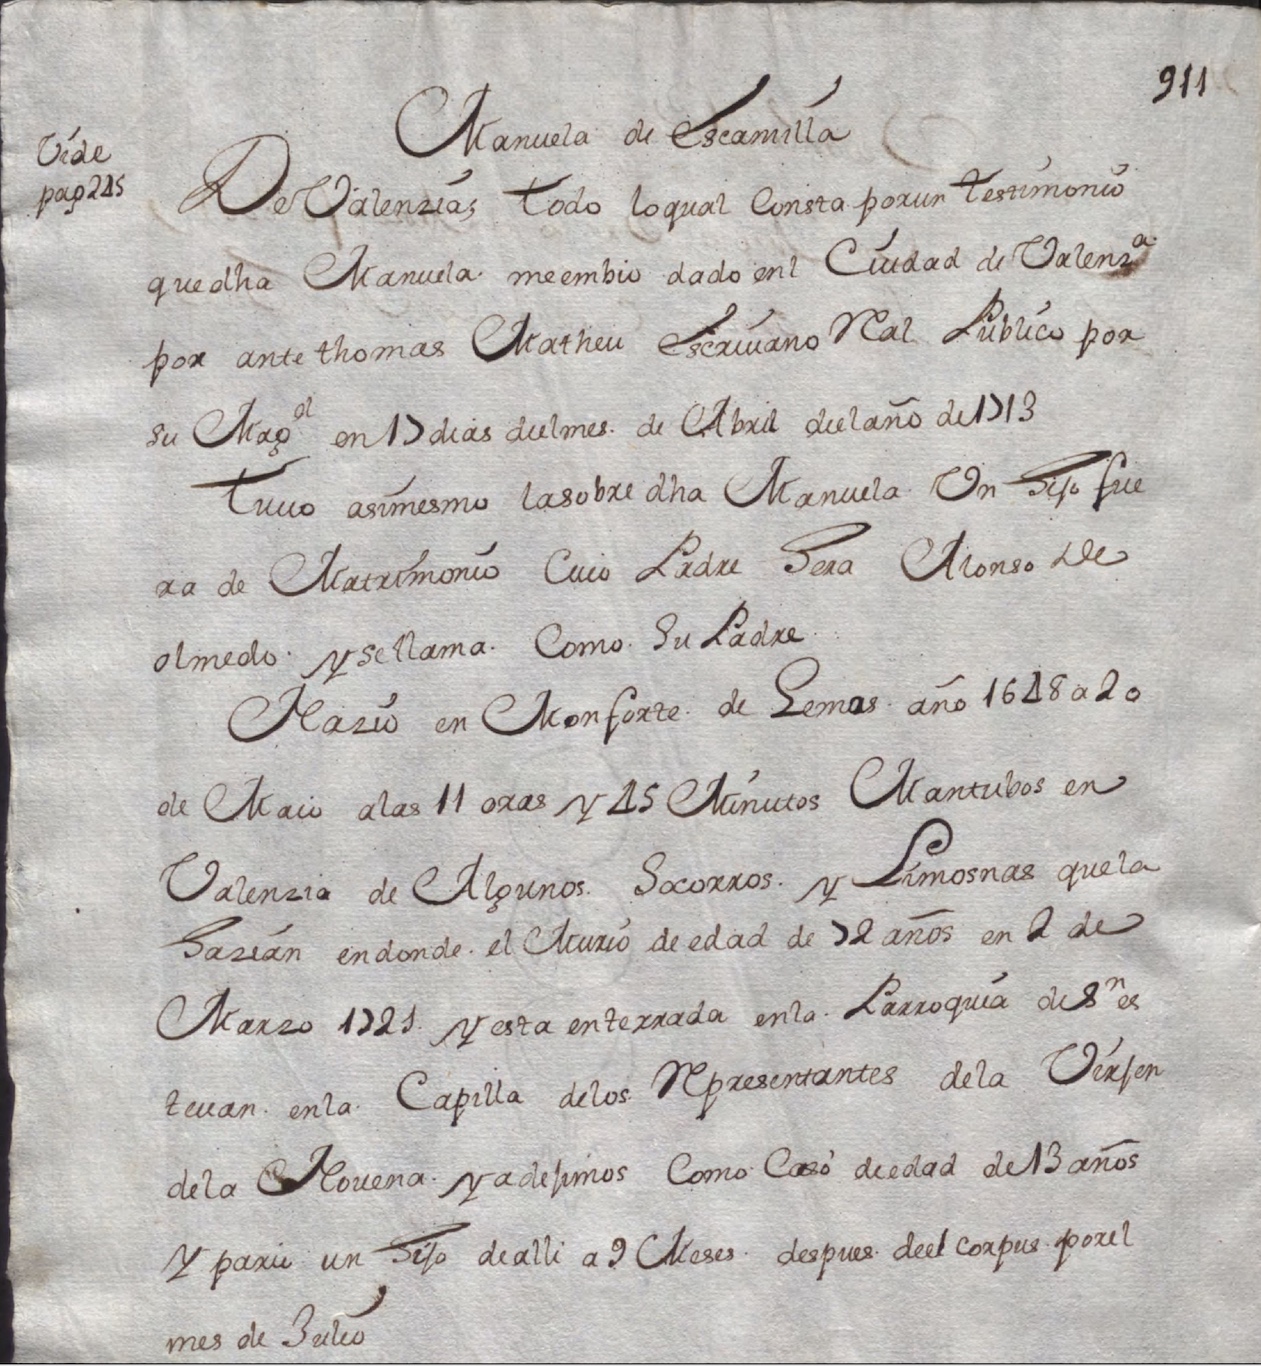 911
Manuela de Escamilla
Vide
pag 245
De Valenzia; todo lo qual Consta por un testimonio
que dha Manuela me embio dado en l Ciudad de Valenzª
por ante thomas Matheu Escriuano Rl Publico por
su Magd en 17 dias del mes de Abril del año de 1713
tuuo asimesmo la sobre dha Manuela Un Hijo fue
ra de Matrimonio Cuio Padre Hera Alonso De
olmedo y se llama Como Su Padre
Nazio en Monforte de Lemos año 1648 a 20
de Maio a las 11 oras y 45 Minutos Mantubos en
Valenzia de Algunos Socorros y Limosnas que la
Hazian en donde el Murio de edad de 72 años en 2 de
Marzo 1721 y esta enterrada en la Parroquia de Sn es
teuan en la Capilla de los Representantes de la Virjen
de la Nouena y a dejimos Como Caso de edad de 13 años
y pario un Hijo de alli a 9 Meses despues de el corpus por el
mes de Julio